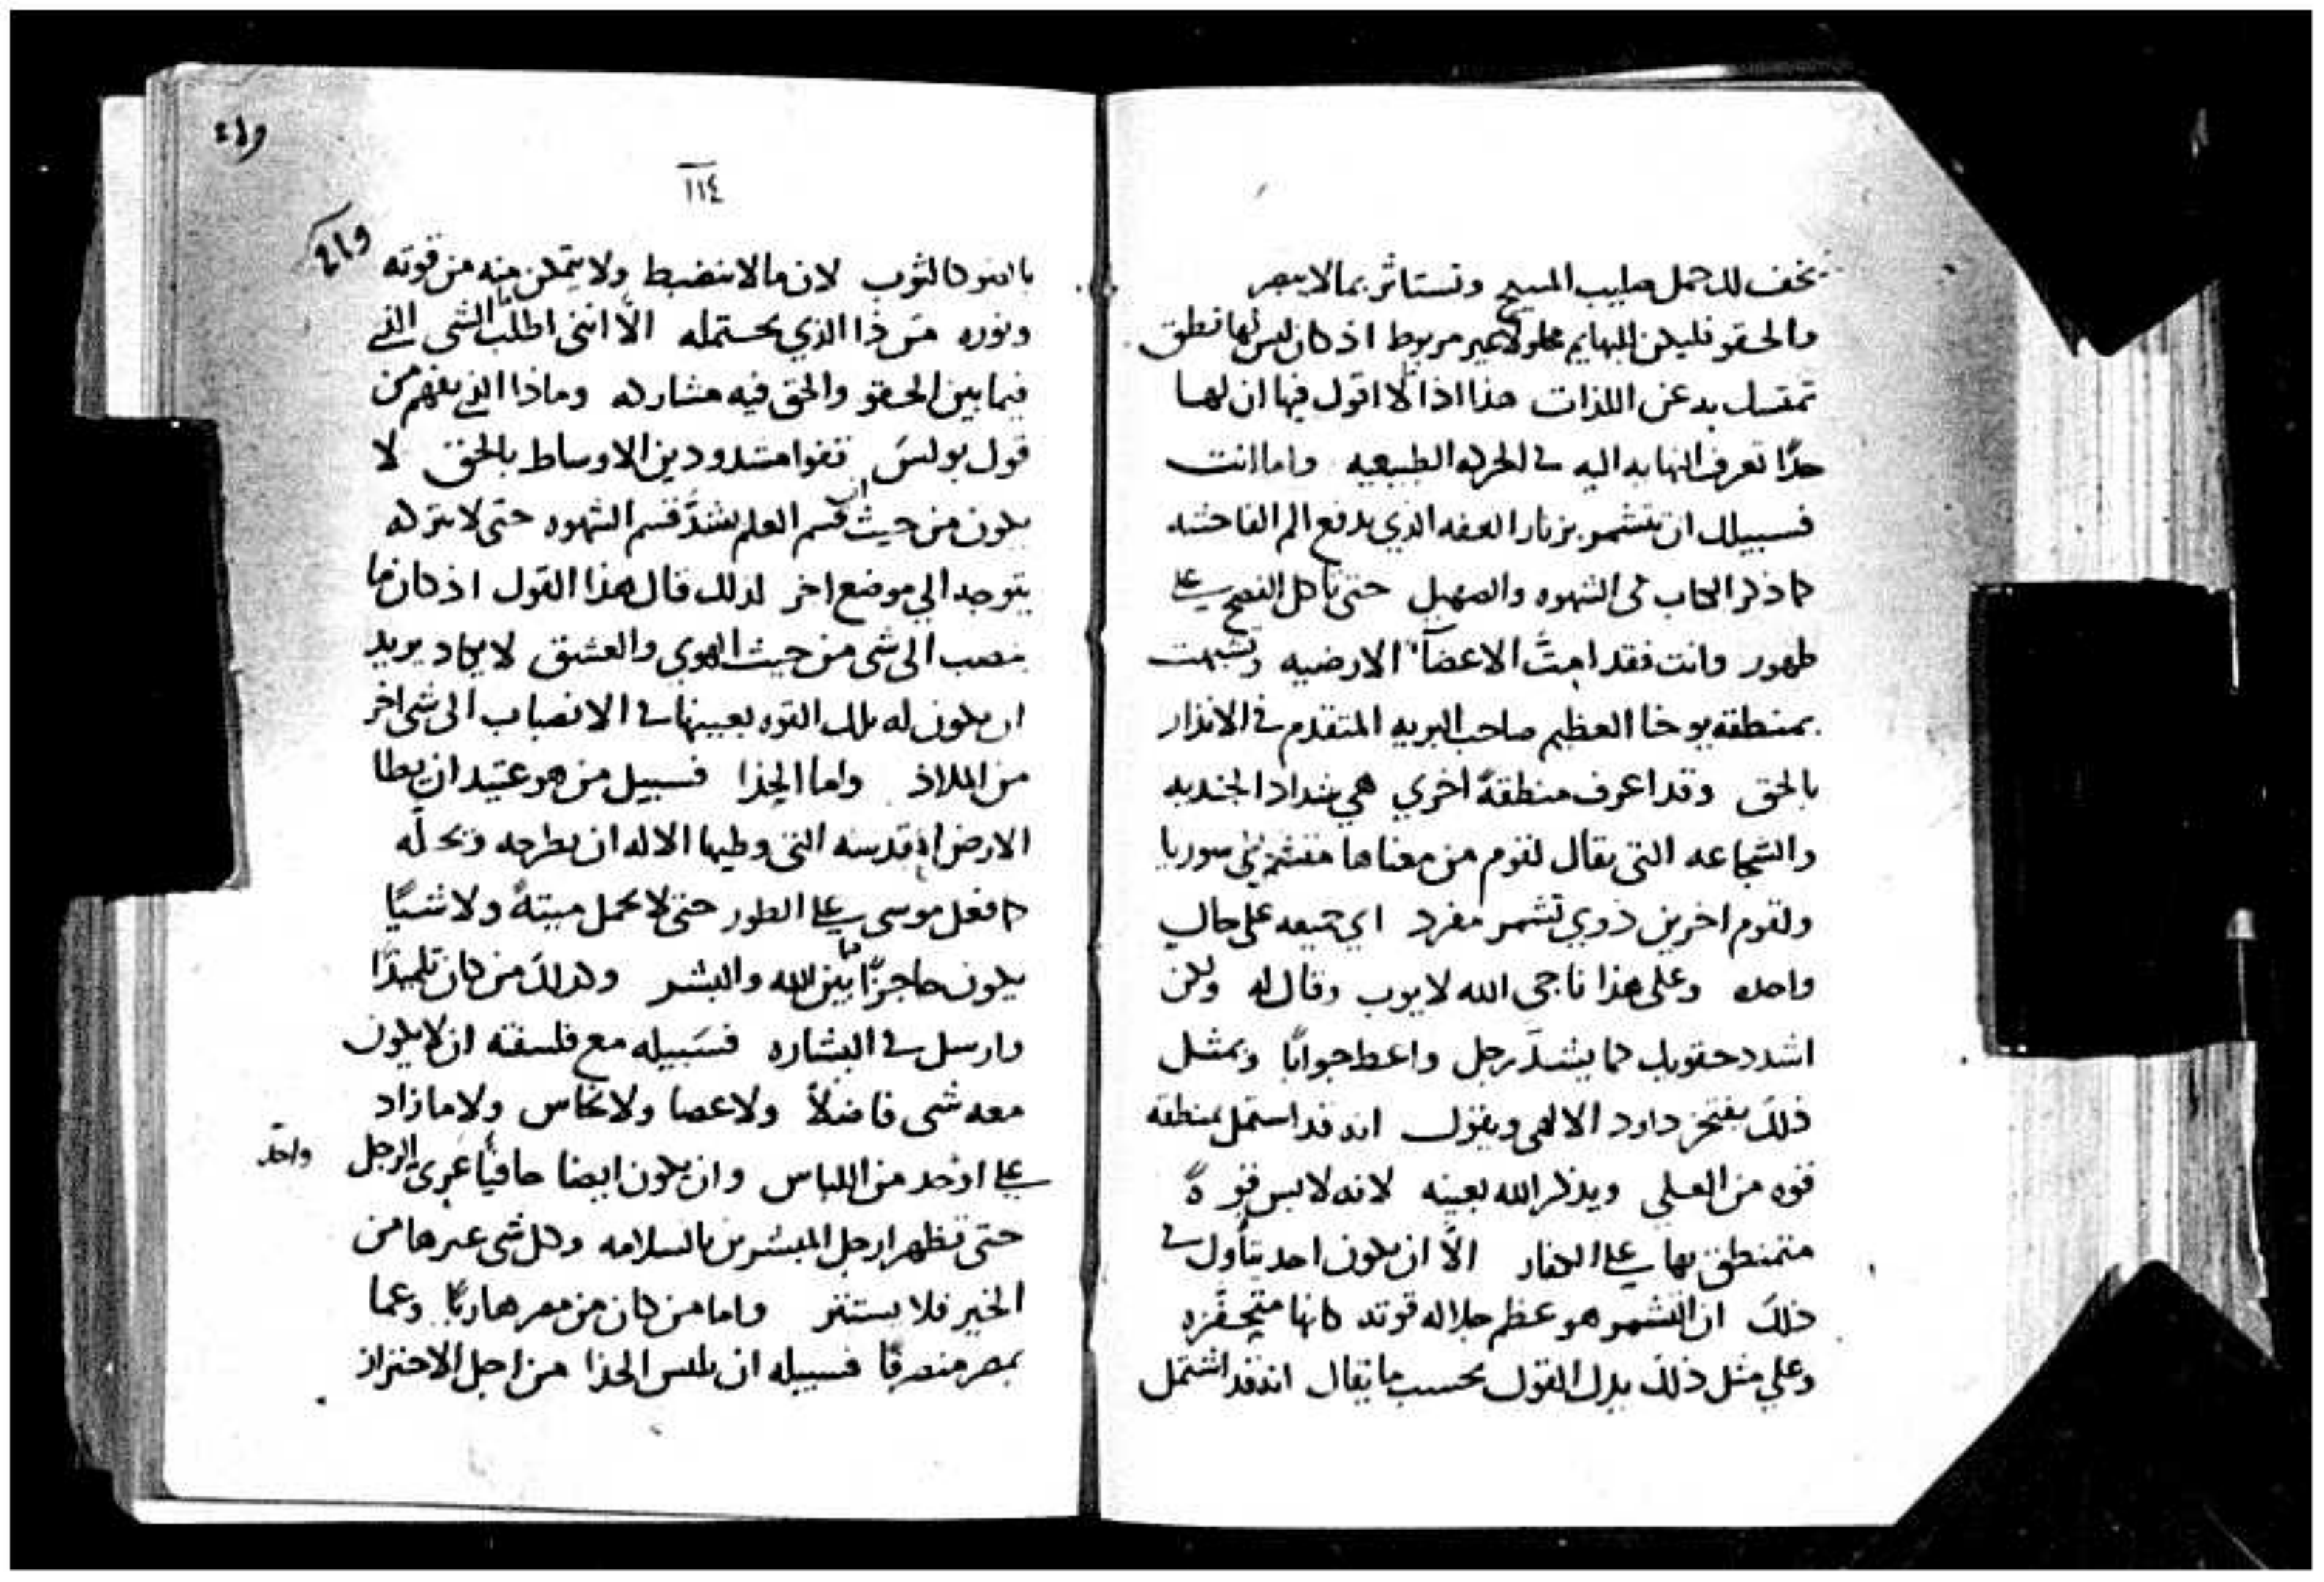 تخف لك حمل صليب المسيح وتستاثر بما لا يبصر
والحقو فليكن للبهايم محلولا غير مربوط اذ كان ليس لها نطق
تمتسك به عن اللذات هذا اذا لا اقول فيها ان لها
حدًا تعرف النهايه اليه في الحركه الطبيعيه واما انت
فسبيلك ان تتشمر بزنار العفه الذي يدفع الم الفاحشه
كما ذكر الكتاب في الشهوه والصهيل حتى تاكل الفصح على
طهور وانت فقد امتَّ الاعضآ الارضيه وتشبهت
بمنطقه يوحنا العظيم صاحب البريه المتقدم في الانذار
بالحق وقد اعرف منطقةً اخري هي شداد الجنديه
والشجاعه التي يقال لقوم من معناها سوريا
ولقوم اخرين ذوي تشمر مفرد اي على حال
واحده وعلى هذا ناجى الله لايوب وقال له ولكن
اشدد حقويك كما يشدّ رجل واعط جوابًا وبمثل
ذلك يفتخر داود الالهى ويقول انه قد استمل بمنطقه
قوه من العلي ويذكر الله بعينه لانه لابس قوةً
متمنطق بها على الكفار الّا ان يكون احد يتأول في
ذلك ان التشمر هو عظم جلاله قوته كانها متحفزه
وعلي مثل ذلك يدل القول بحسب ما يقال انه قد اشتمل
١١٤
بالضو كالثوب لان ما لا ينضبط ولا يتمكن منه من قوته
ونوره من ذا الذي يحتمله الّا انني اطلب الشى الذي
فيما بين الحقو والحق فيه مشاركه وماذا الذي يفهم من
قول بولس قفوا مشدودين الاوساط بالحق لا
يكون من حيث ان قسم العلم يشدّ قسم الشهوه حتى لا يتركه
يتوجه الي موضع اخر لذلك قال هذا القول اذ كان ما
ينصب الى شى من حيث الهوي والعشق لا يكاد يريد
ان يكون له تلك القوه بعينها في الانصباب الى شى اخر
من الملاذ واما الحذا فسبيل من هو عتيد ان يطا
الارض القدسه التى وطيها الاله ان يطرحه ويحلّه
كما فعل موسى على الطور حتى لا يحمل ميتةً ولا شيًا
يكون حاجزًا ما بين الله والبشر وكذلك من كان تلميذًا
وارسل في البشاره فسَبيله مع فلسفته ان لا يكون
معه شى فاضلاً ولا عصا ولا نحاس ولا ما زاد
على اوحد من اللباس وان يكون ايضا حافيًا عَري الرجل واحد
حتى تظهر ارجل المبشرين بالسلامه وكل شى غيرها من
الخير فلا يستتر واما من كان من مصر هاربًا وعما
بمصر منصرفًا فسبيله ان يلبس الحذا من اجل الاحتراز